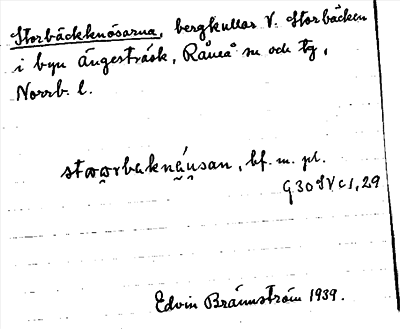 Storbäckknösarna, bergkullar V. Storbäcken
i byn Ängesträsk, Råneå sn och tg,
Norrb. l.
bf. m. pl.
G 30 IV c 1, 29
Edvin Brännström 1939.